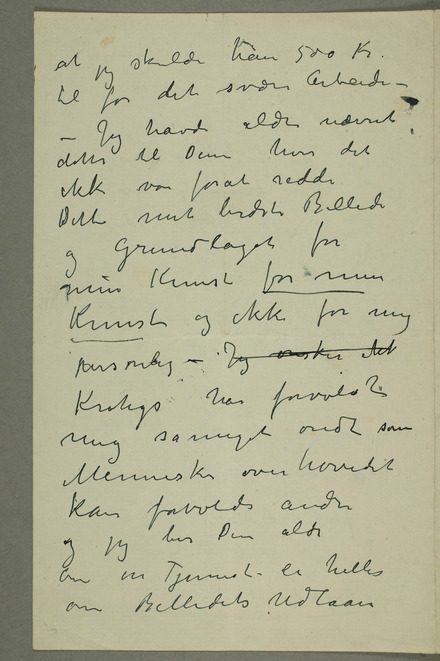 at jeg skulde have 500 Kr.
til for det svære Arbeide –
– Jeg havde aldri nævnt
dette til Dem hvis det
ikke var forat redde
Dette mit bedste Billede
og Grundlaget for
min Kunst for min
Kunst og ikke for mig
personlig – Jeg ønsker ikke
Krohgs har forvoldt
mig saameget ondt som
Mennesker overhovedet
kan forvolde andre
og jeg ber Dem aldri
om en Tjeneste – ei heller
om Billedets Udlaan